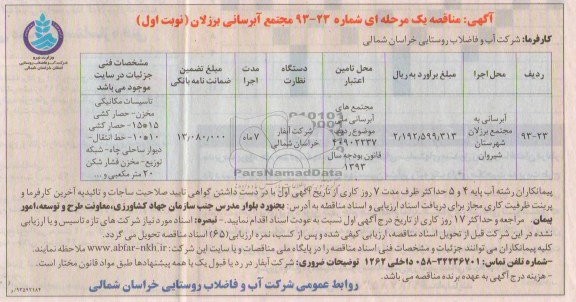 آگهی: مناقصه یک مرحله ای شماره ۲۳-۹۳ مجتمع آبرسانی برزلان (نوبت اول)
کارفرما: شرکت آب و فاضلاب روستایی خراسان شمالی
وزارت نیرو
شرکت آب و فاضلاب روستایی
استان خراسان شمالی
ردیف
محل اجرا
مبلغ برآورد به ریال
محل تامین اعتبار
دستگاه نظارت
مدت اجرا
مبلغ تضمین ضمانت نامه بانکی
مشخصات فنی جزئیات در سایت موجود می باشد
۹۳-۲۳
آبرسانی به مجتمع برزلان شهرستان شیروان
۲/۱۹۲/۵۹۹/۳۱۳
مجتمع های آبرسانی ملی موضوع ردیف ۴۰۹۰۲۲۳۷ قانون بودجه سال ۱۳۹۳
شرکت آبفار خراسان شمالی
۷ ماه
۱۳/۰۸۰/۰۰۰
تاسیسات مکانیکی مخزن- حصار کشی ۱۵*۱۵- حصار کشی ۱۰*۱۰- خط انتقال- دیوار ساحلی چاه- شبکه توزیع- مخزن فشار شکن ۲۰ متر مکعبی و...
پیمانکاران رشته آب پایه ۴ و ۵ حداکثر ظرف مدت ۷ روز کاری از تاریخ آگهی اول با در دست داشتن گواهی تایید صلاحیت ساجات و تائیدیه آخرین کارفرما و
پرینت ظرفیت کاری مجاز برای دریافت اسناد ارزیابی و اسناد مناقصه به آدرس: بجنورد بلوار مدرس جنب سازمان جهاد کشاورزی، معاونت طرح و توسعه، امور
پیمان. مراجعه و حداکثر ۱۷ روز کاری از تاریخ درج آگهی اول نسبت به عودت اسناد اقدام نمایید. - تبصره: اسناد مورد نیاز شرکت های تازه تاسیس و یا ارزیابی
نشده در این شرکت قبل از تحویل اسناد مناقصه، ارزیابی کیفی شده و پس از کسب، نمره ارزیابی (۶۵) اسناد مناقصه تحویل می گردد.
کلیه پیمانکاران می توانند جزئیات و مشخصات فنی اسناد مناقصه را در پایگاه ملی مناقصات و یا سایت این شرکت: www.abfar-nkh.ir ملاحظه نمایند.
-شماره تلفن تماس: ۳۲۲۳۶۷۰۱-۰۵۸ داخلی ۱۲۶۲ توضیحات ضروری: شرکت آبفار در رد یا قبول یک یا همه پیشنهادها طبق مواد قانون مختار است.
- هزینه درج آگهی به عهده برنده مناقصه می باشد.
روابط عمومی شرکت آب و فاضلاب روستایی خراسان شمالی
ParsNamadData